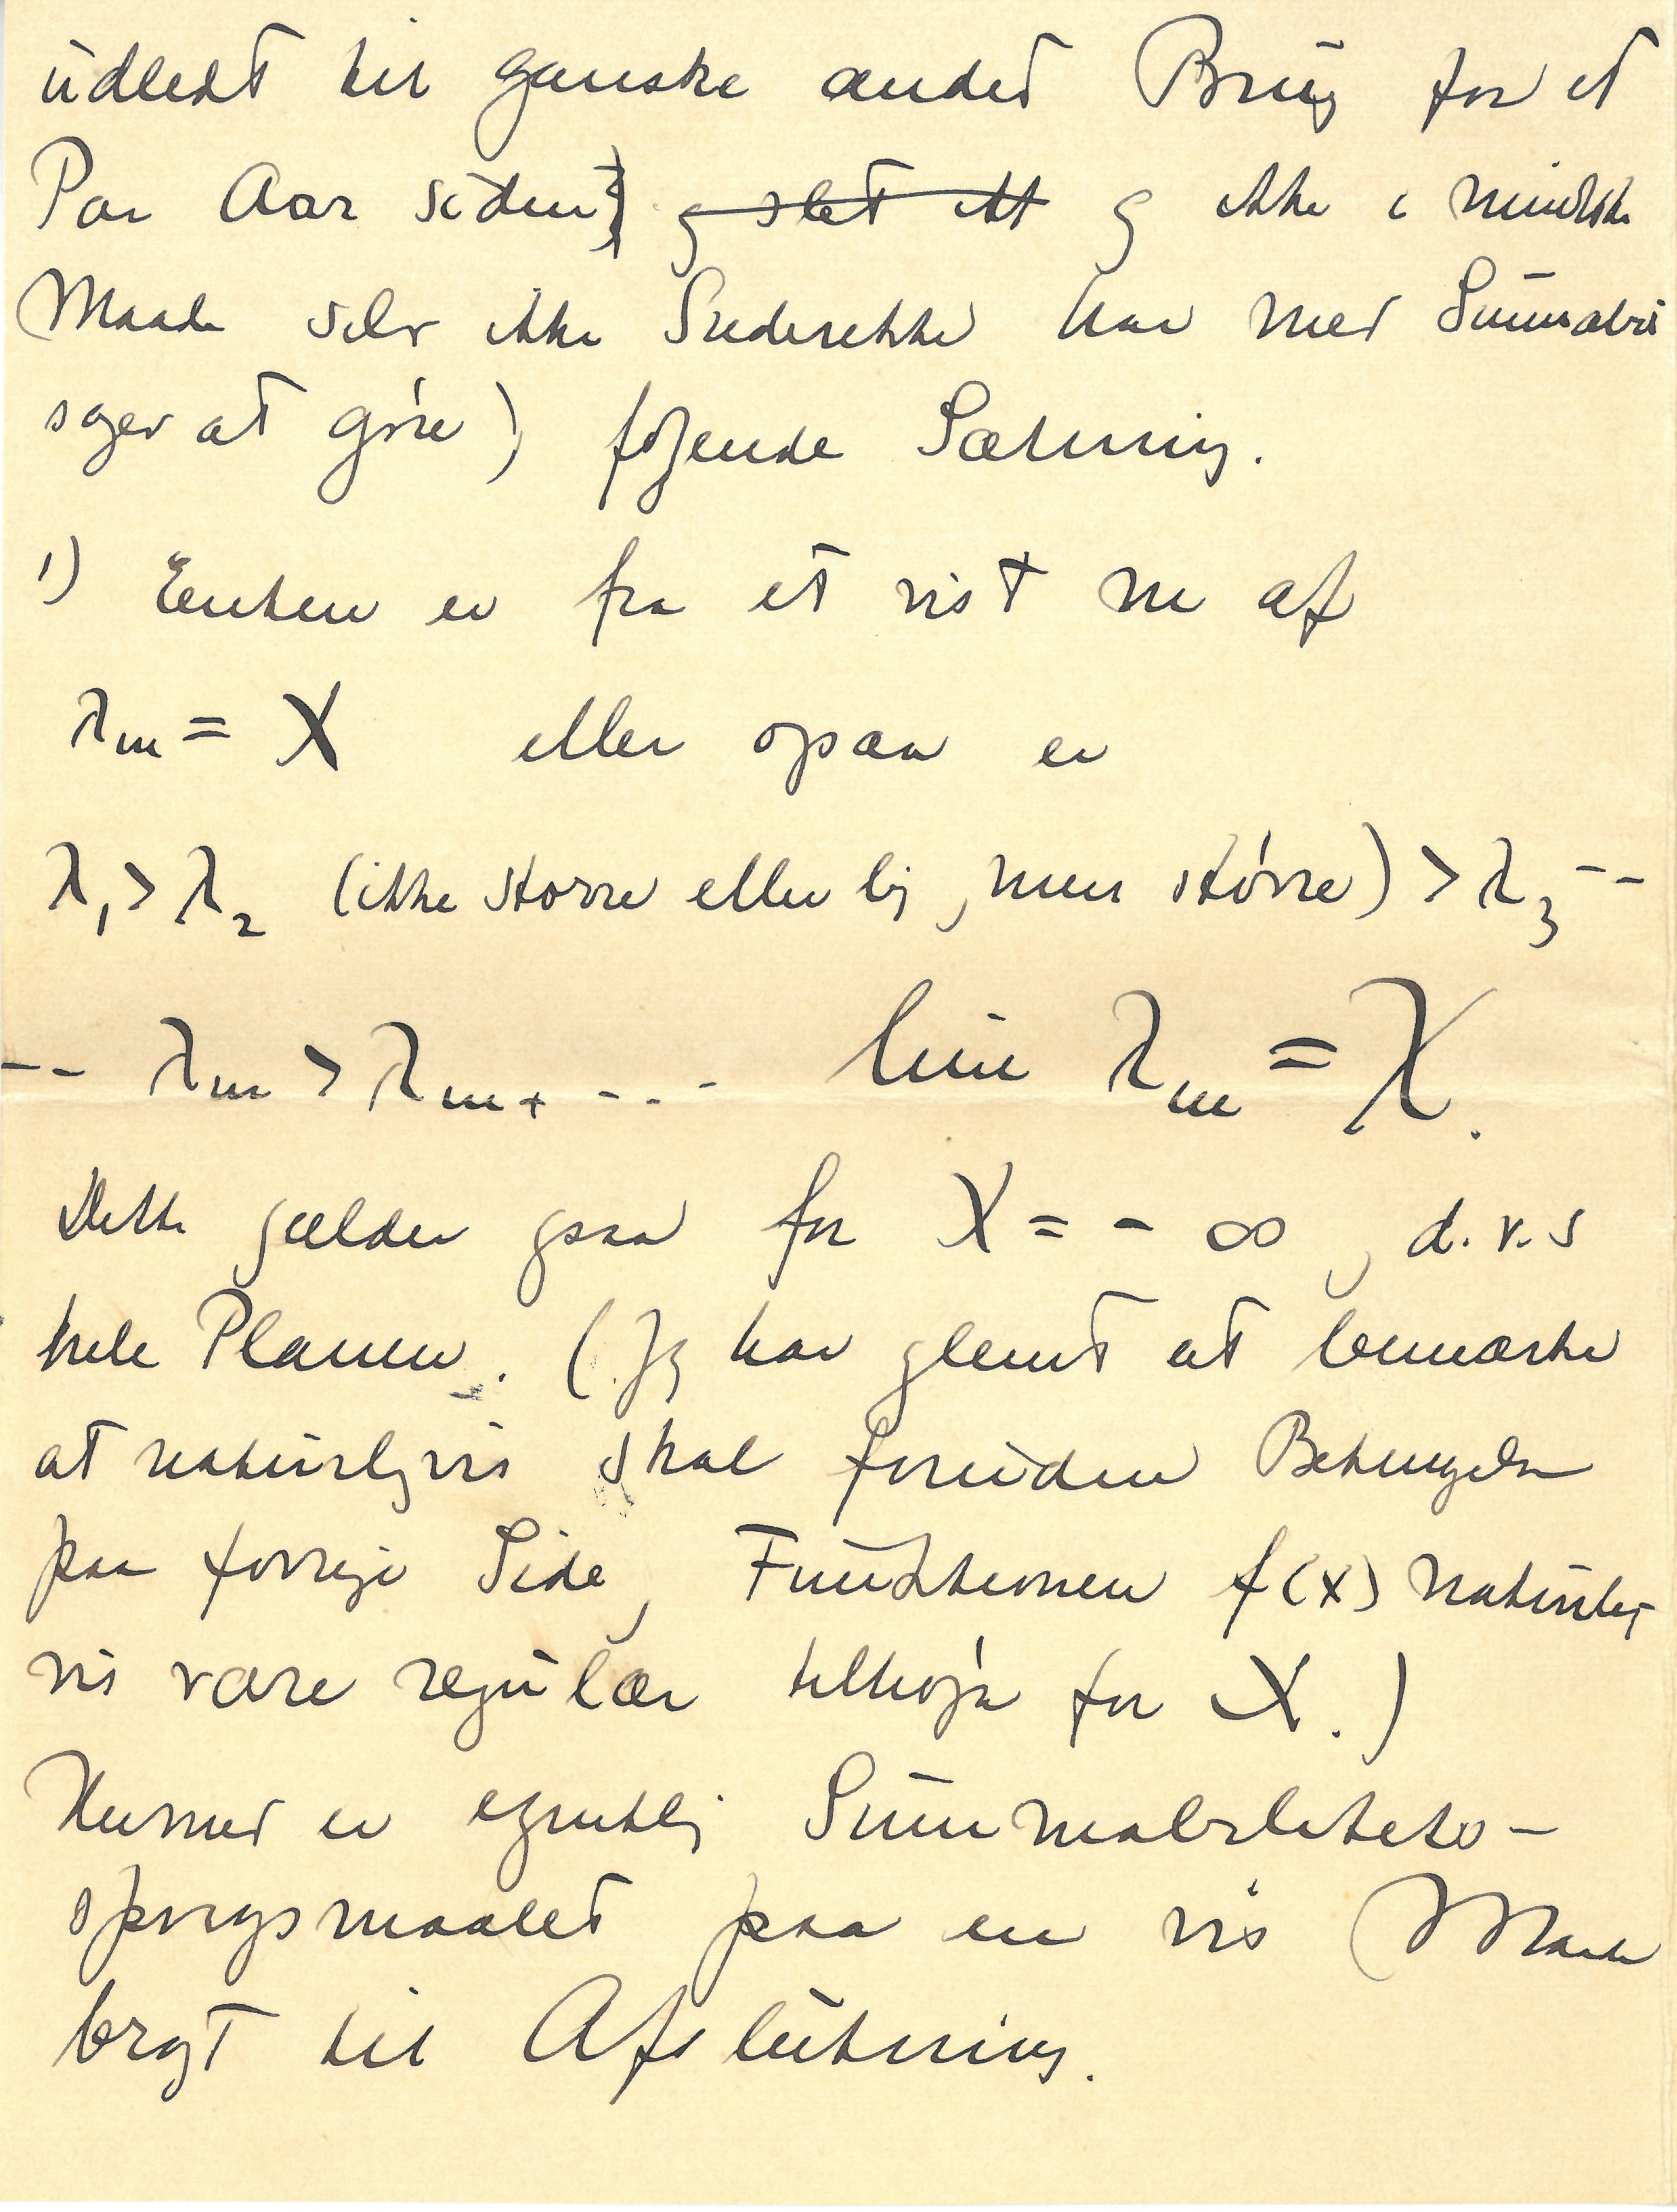 udledt til ganske andet Brug for et
Par Aar siden og slet ikk og ikke i mindste
Maade selv ikke har med Summabi
at gøre) følgende Sætning.
1) Enten er fra et vist m af
λm = X eller ogsaa er
λ1 > λ2 (ikke større eller lig, men større) > λ3 --
-- λm > λm+ --- lim λm = X.
Dette gælder ogsaa for X = -∞, d.v.s
hele Planen. (Jeg har glemt at bemærke
at naturligvis skal foruden Betingelsen
paa forrige Side, Funktionen f(x) naturlig
vis være regulær tilhøjre for X.)
Hermed er egentlig Summabilitets-
spørgsmaalet paa en vis Maade
bragt til Afslutning.